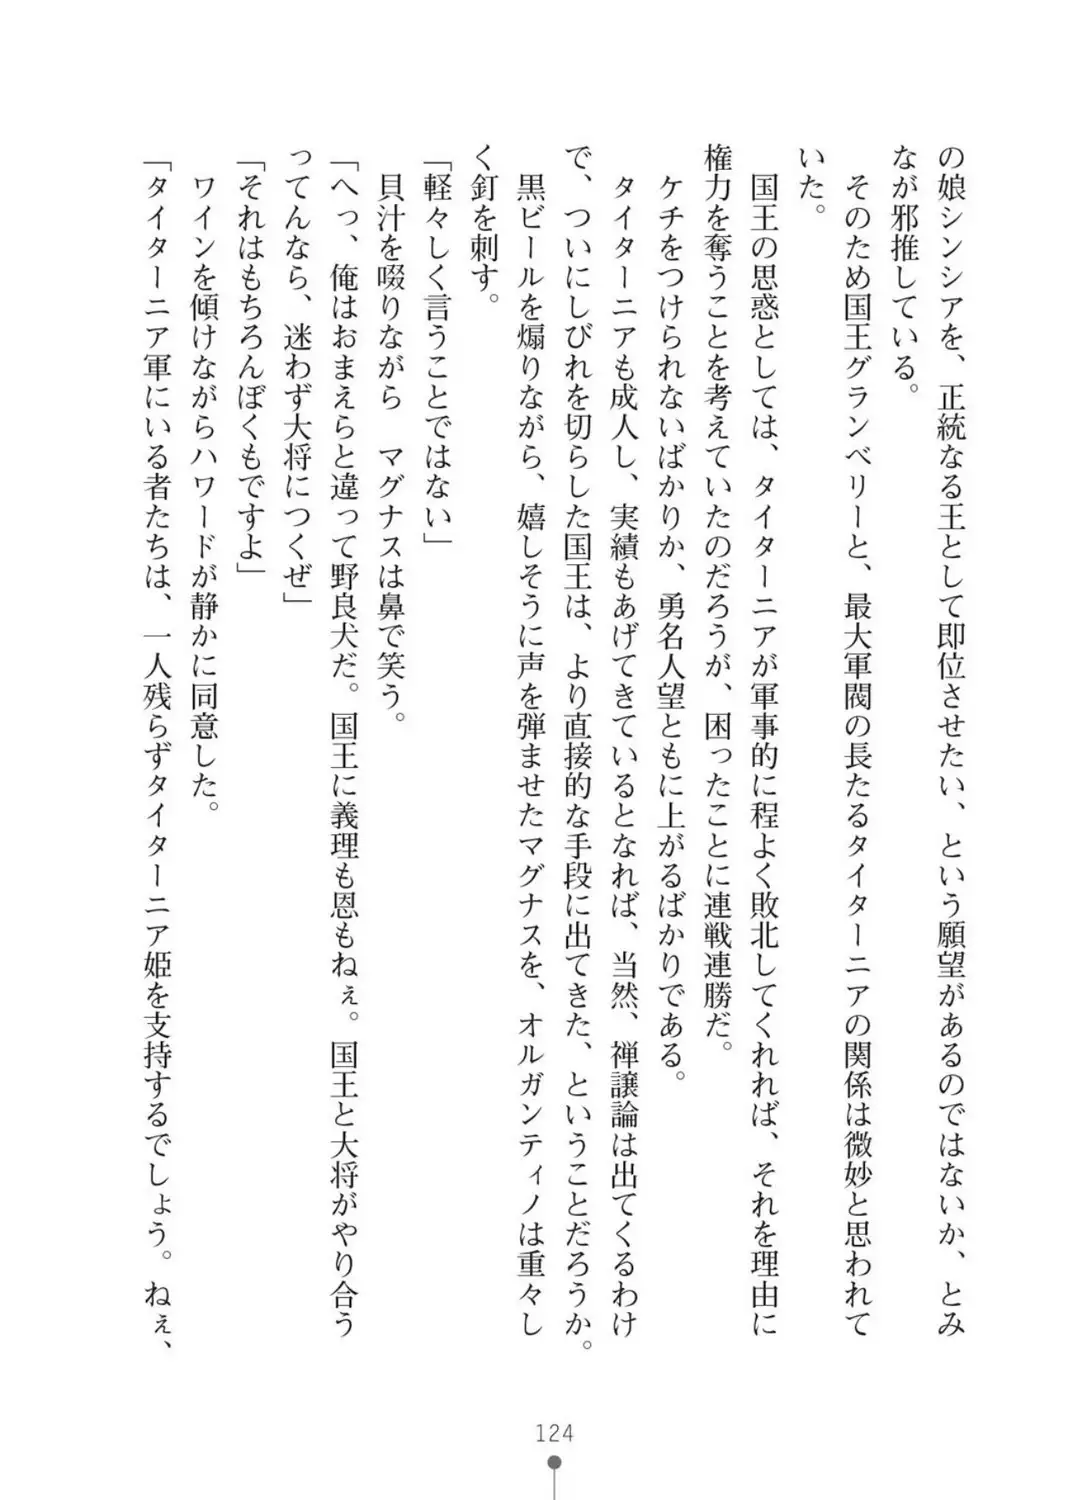 の娘シンシアを、正統なる王として即位させたい、という願望があるのではないか、とみ
なが邪推している。
そのため国王グランベリーと、最大軍閥の長たるタイターニアの関係は微妙と思われて
いた。
国王の思惑としては、タイターニアが軍事的に程よく敗北してくれれば、それを理由に
権力を奪うことを考えていたのだろうが、困ったことに連戦連勝だ。
ケチをつけられないばかりか、勇名人望ともに上がるばかりである。
タイターニアも成人し、実績もあげてきているとなれば、当然、禅譲論は出てくるわけ
で、ついにしびれを切らした国王は、より直接的な手段に出てきた、ということだろうか。
黒ビールを煽りながら、嬉しそうに声を弾ませたマグナスを、オルガンティノは重々し
く釘を刺す。
「軽々しく言うことではない」
貝汁を啜りながら　マグナスは鼻で笑う。
「へっ、俺はおまえらと違って野良犬だ。国王に義理も恩もねぇ。国王と大将がやり合う
ってんなら、迷わず大将につくぜ」
「それはもちろんぼくもですよ」
ワインを傾けながらハワードが静かに同意した。
「タイターニア軍にいる者たちは、一人残らずタイターニア姫を支持するでしょう。ねぇ、
124